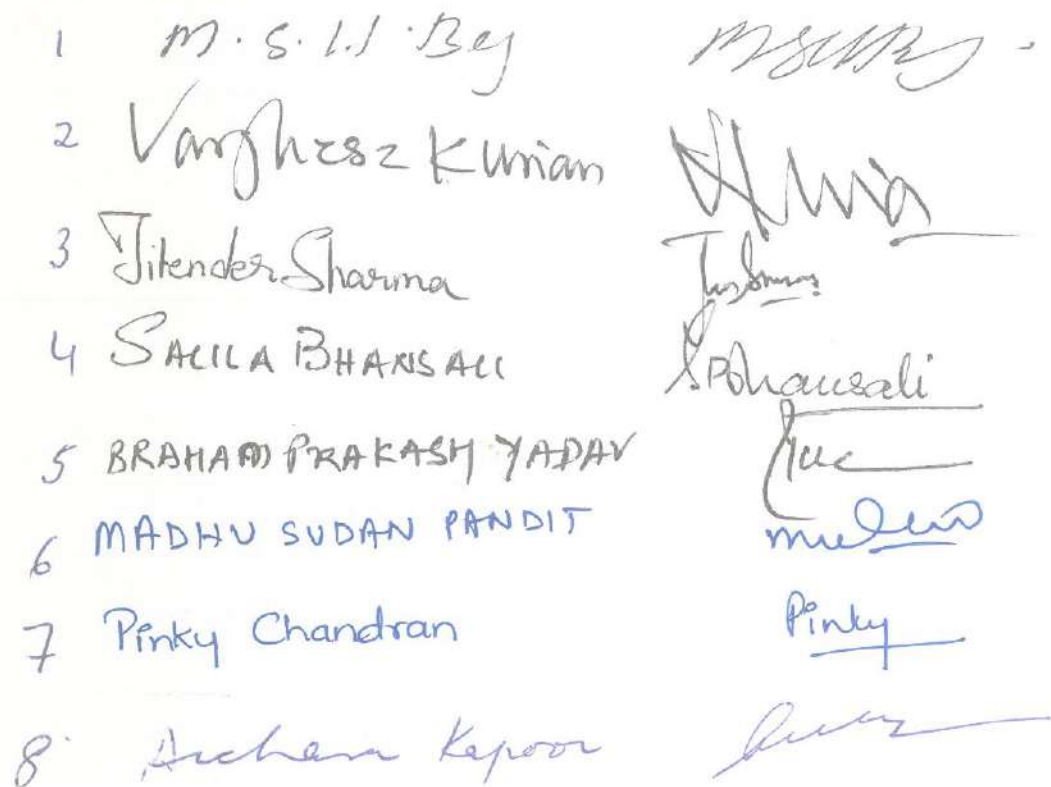 1 M. S. H. Beg
2 Varghese Kurian
3 Jitender Sharma
4 SALILA BHANSALI SBhansali
5 BRAHAM PRAKASH YADAV
6 MADHU SUDAN PANDIT
7 Pinky Chandran Pinky
8. Archana Kapoor